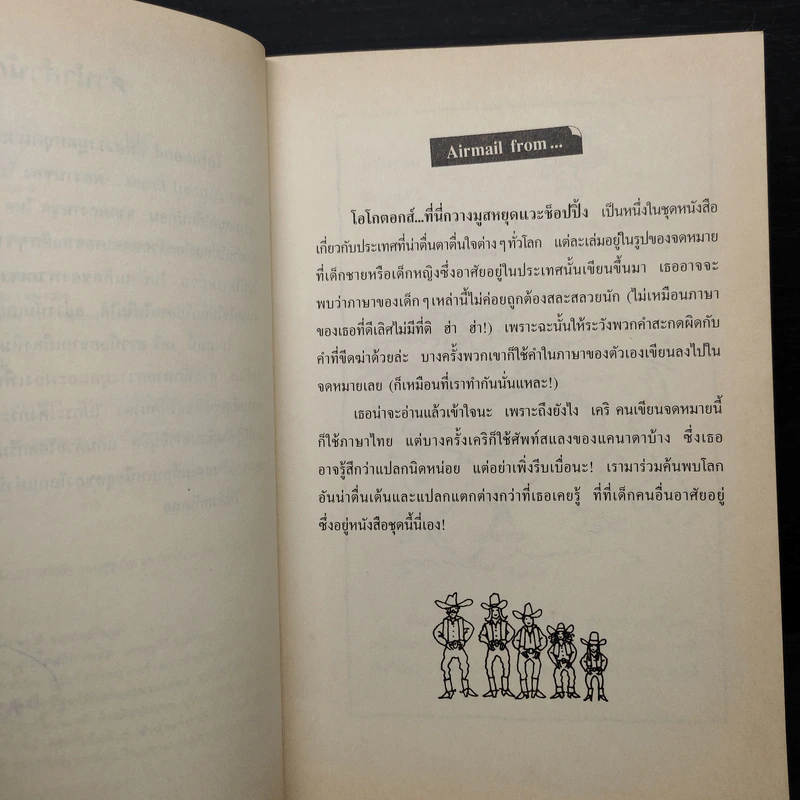 Airmail from...
โอโกตอกส์...ที่นี่กวางมูสหยุดแวะช็อปปิ้ง เป็นหนึ่งในชุดหนังสือ
เกี่ยวกับประเทศที่น่าตื่นตาตื่นใจต่างๆทั่วโลก แต่ละเล่มอยู่ในรูปของจดหมาย
ที่เด็กชายหรือเด็กหญิงซึ่งอาศัยอยู่ในประเทศนั้นเขียนขึ้นมา เธออาจจะ
พบว่าภาษาของเด็กๆเหล่านี้ไม่ค่อยถูกต้องสละสลวยนัก (ไม่เหมือนภาษา
ของเธอที่ดีเลิศไม่มีที่ติ ฮ่า ฮ่า!) เพราะฉะนั้นให้ระวังพวกคำสะกดผิดกับ
คำที่ขีดฆ่าด้วยล่ะ บางครั้งพวกเขาก็ใช้คำในภาษาของตัวเองเขียนลงไปใน
จดหมายเลย (ก็เหมือนที่เราทำกันนั่นแหละ!)
เธอน่าจะอ่านแล้วเข้าใจนะ เพราะถึงยังไง เคริ คนเขียนจดหมายนี้
ก็ใช้ภาษาไทย แต่บางครั้งเคริก็ใช้ศัพท์สแลงของแคนาดาบ้าง ซึ่งเธอ
อาจรู้สึกว่าแปลกนิดหน่อย แต่อย่าเพิ่งรีบเบื่อนะ! เรามาร่วมค้นพบโลก
อันน่าตื่นเต้นและแปลกแตกต่างกว่าที่เธอเคยรู้ ที่ที่เด็กคนอื่นอาศัยอยู่
ซึ่งอยู่หนังสือชุดนี้นี่เอง!